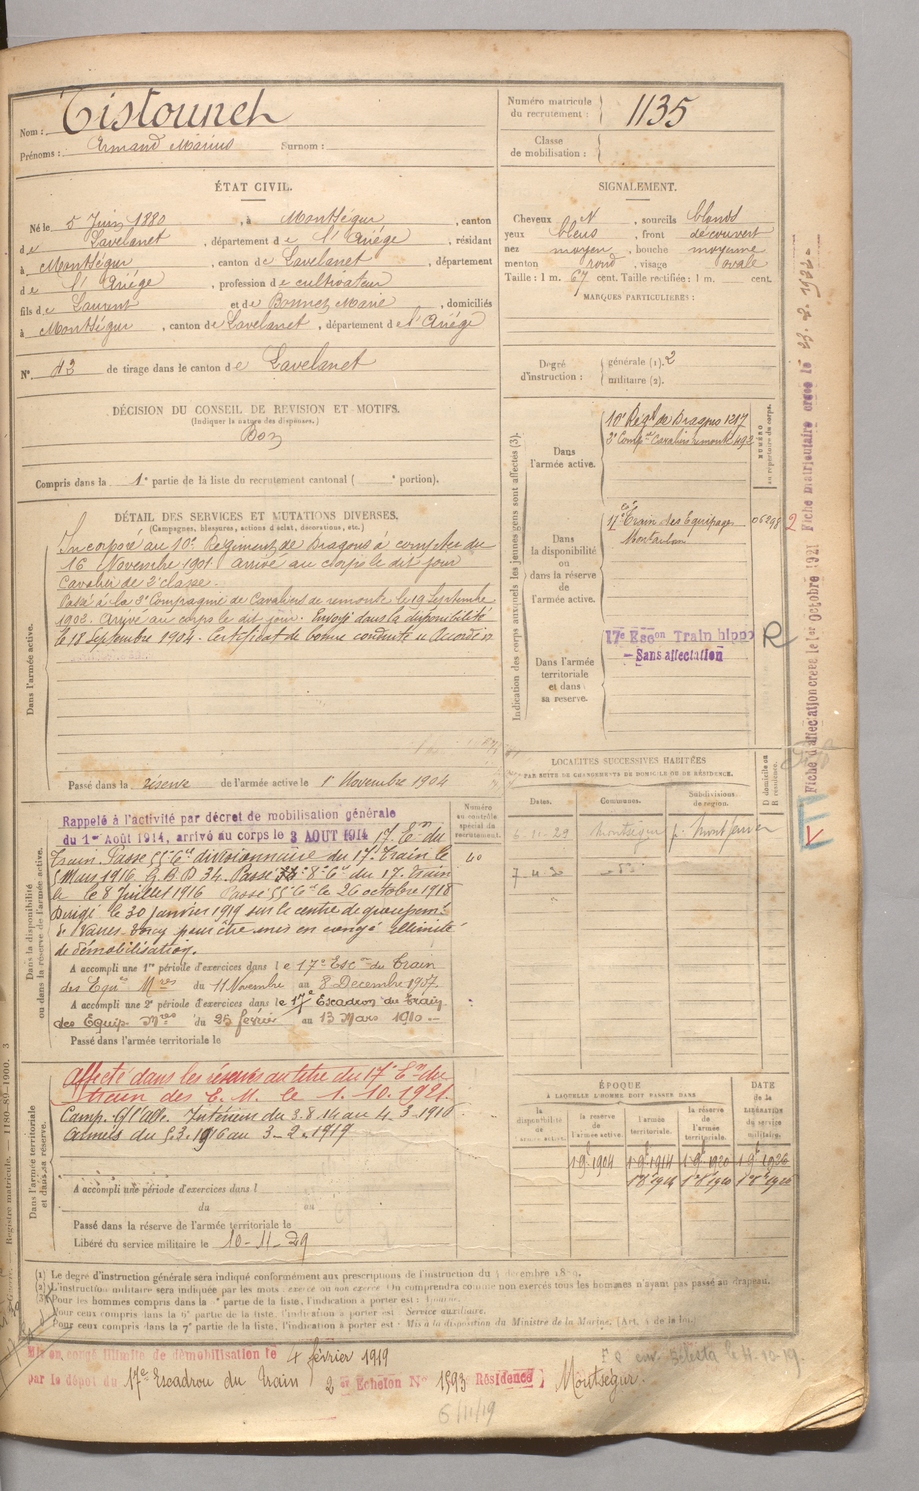 Nom : Tistounet
Prénoms : Armand Marius Surnom :
Numéro matricule
du recrutement : 1135
Classe
de mobilisation :
ÉTAT CIVIL.
Né le 5 Juin 1880, à Montségur, canton
de Lavelanet, département de l'Ariége, résidant
à Montségur, canton de Lavelanet, département
de l'Ariége, profession de cultivateur
fils de Laurent et de Bonnez Marie, domiciliés
à Montségur, canton de Lavelanet, département de l'Ariége
N° 43 de tirage dans le canton de Lavelanet
DÉCISION DU CONSEIL DE REVISION ET MOTIFS.
(Indiquer la nature des dispenses.)
Bon
Compris dans la 1e partie de la liste du recrutement cantonal ( e portion).
SIGNALEMENT.
Cheveux N, sourcils blonds
yeux bleus, front découvert
nez moyen, bouche moyenne
menton rond, visage ovale
Taille : 1 m. 67 cent. Taille rectifiée : 1 m. cent.
MARQUES PARTICULIÈRES :
Degré
d'instruction :
générale (1). 2
militaire (2).
DÉTAIL DES SERVICES ET MUTATIONS DIVERSES.
(Campagnes, blessures, actions d'éclat, décorations, etc.)
Dans l'armée active.
Incorporé au 10e Régiment de Dragons à compter du
16 Novembre 1901 arrivé au corps le dit jour
Cavalier de 2e classe.
Passé à la 3e Compagnie de Cavaliers de remonte le 19 Septembre
1902. Arrivé au corps le dit jour. Envoyé dans la disponibilité
le 18 Septembre 1904. Certificat de bonne conduite « Accordé »
Passé dans la réserve de l'armée active le 1er Novembre 1904
Indication des corps auxquels les jeunes gens sont affectés (3).
NUMÉRO
au répertoire du corps.
Dans
l'armée active.
10e Régt de Dragons 1217
3e Compie Cavaliers remonte 492
Dans
la disponibilité
ou
dans la réserve
de
l'armée active.
17e Train des Equipages
Montauban
06298
2
Dans l'armée
territoriale
et dans
sa réserve.
17e Escon Train hippo R
- Sans affectation
Fiche d'affectation créée le 1er Octobre 1921 Fiche matriculaire
Dans la disponibilité
ou dans la réserve de l'armée active.
Numéro
au contrôle
spécial du
recrutement.
40
Rappelé à l'activité par décret de mobilisation générale
du 1er Août 1914, arrivé au corps le 3 AOUT 1914 17e En du
Train. Passé Cie divisionnaire du 17e Train le
5 Mars 1916 G.B.D 34. Passé 8e Cie du 17e Train
le 8 Juillet 1916 Passé le 26 octobre 1918
Dirigé le 30 janvier 1919 sur le centre de groupemt
pour être mis en congé illimité
de démobilisation.
A accompli une 1re période d'exercices dans le 17e Escon du Train
des Equies Mres du 11 Novembre au 8 Décembre 1907
A accompli une 2e période d'exercices dans le 17e Escadron du Train
des Equip. Mres du 25 février au 13 Mars 1910
Passé dans l'armée territoriale le
LOCALITÉS SUCCESSIVES HABITÉES
PAR SUITE DE CHANGEMENTS DE DOMICILE OU DE RÉSIDENCE.
D domicile ou
R résidence.
Dates. Communes. Subdivisions
de région.
6-11-29 Montségur
7-4-30
Dans l'armée territoriale
et dans sa réserve.
Affecté dans les réserves au titre du 17e En du
train des E. M. le 1. 10. 1921.
Camp. c/ l'All. Intérieur du 3.8.14 au 4-3-1916
Armées du 5.3.1916 au 3-2-1919
A accompli une période d'exercices dans l
du au
Passé dans la réserve de l'armée territoriale le
Libéré du service militaire le 10-11-29
ÉPOQUE
À LAQUELLE L'HOMME DOIT PASSER DANS
DATE
de la
LIBÉRATION
du service
militaire.
la
disponibilité
de
l'armée active.
la réserve
de
l'armée active.
l'armée
territoriale.
la réserve
de
l'armée
territoriale.
1-9-1904 1-9-1914 1-9-1920 1-9-1926
Registre matricule. — 1180-89-1900. 3
(1) Le degré d'instruction générale sera indiqué conformément aux prescriptions de l'instruction du
(2) L'instruction militaire sera indiquée par les mots : exercé ou non exercé. On comprendra comme non exercés tous les hommes n'ayant pas passé au drapeau.
(3) Pour les hommes compris dans la partie de la liste, l'indication à porter est :
Pour ceux compris dans la 6e partie de la liste, l'indication à porter est : Service auxiliaire.
Pour ceux compris dans la 7e partie de la liste, l'indication à porter est : Mis à la disposition du Ministre de la Marine. (Art. 4 de la loi.)
Mis en congé illimité de démobilisation le 4 février 1919
par le dépôt du 17e Escadron du Train 2e Echelon N° 1593 Résidence Montségur.
6/11/19